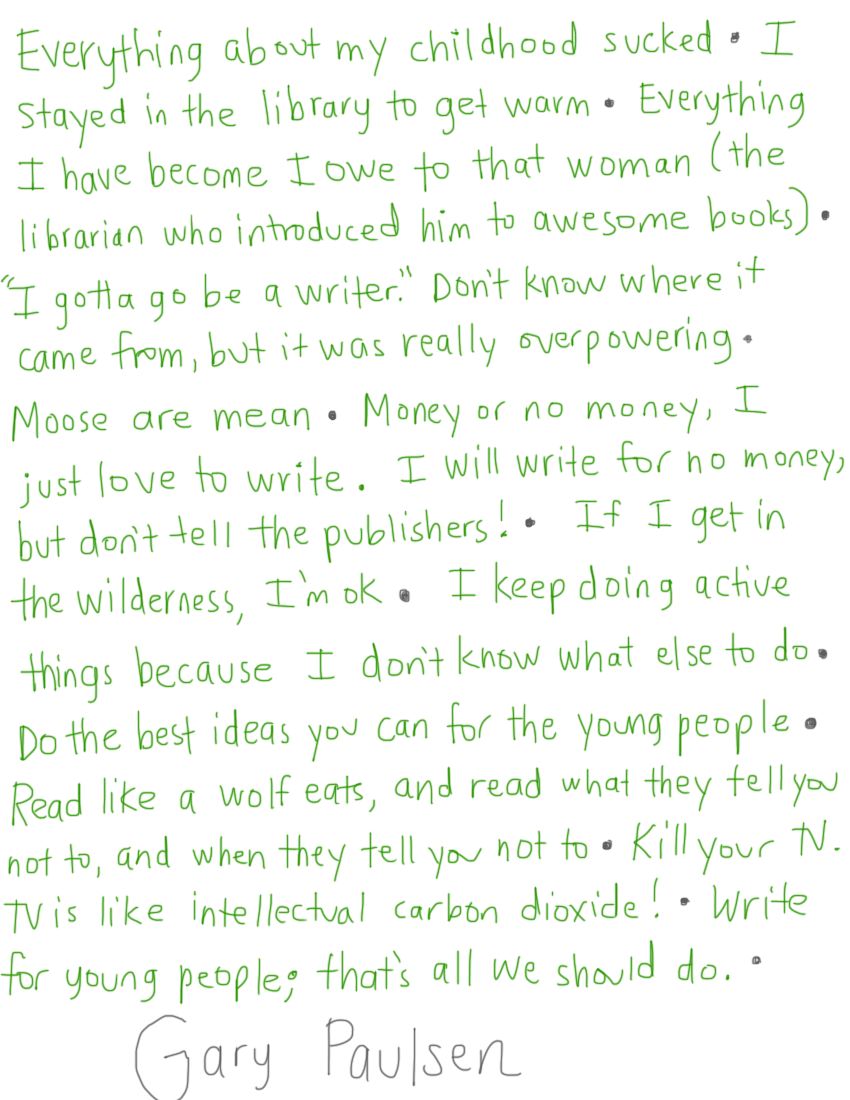 Everything about my childhood sucked • I
stayed in the library to get warm • Everything
I have become I owe to that woman (the
librarian who introduced him to awesome books) •
"I gotta go be a writer." Don't know where it
came from, but it was really overpowering •
Moose are mean • Money or no money, I
just love to write. I will write for no money,
but don't tell the publishers! • If I get in
the wilderness, I'm ok • I keep doing active
things because I don't know what else to do •
Do the best ideas you can for the young people •
Read like a wolf eats, and read what they tell you
not to, and when they tell you not to • Kill your TV.
TV is like intellectual carbon dioxide! • Write
for young people; that's all we should do. •
Gary Paulsen